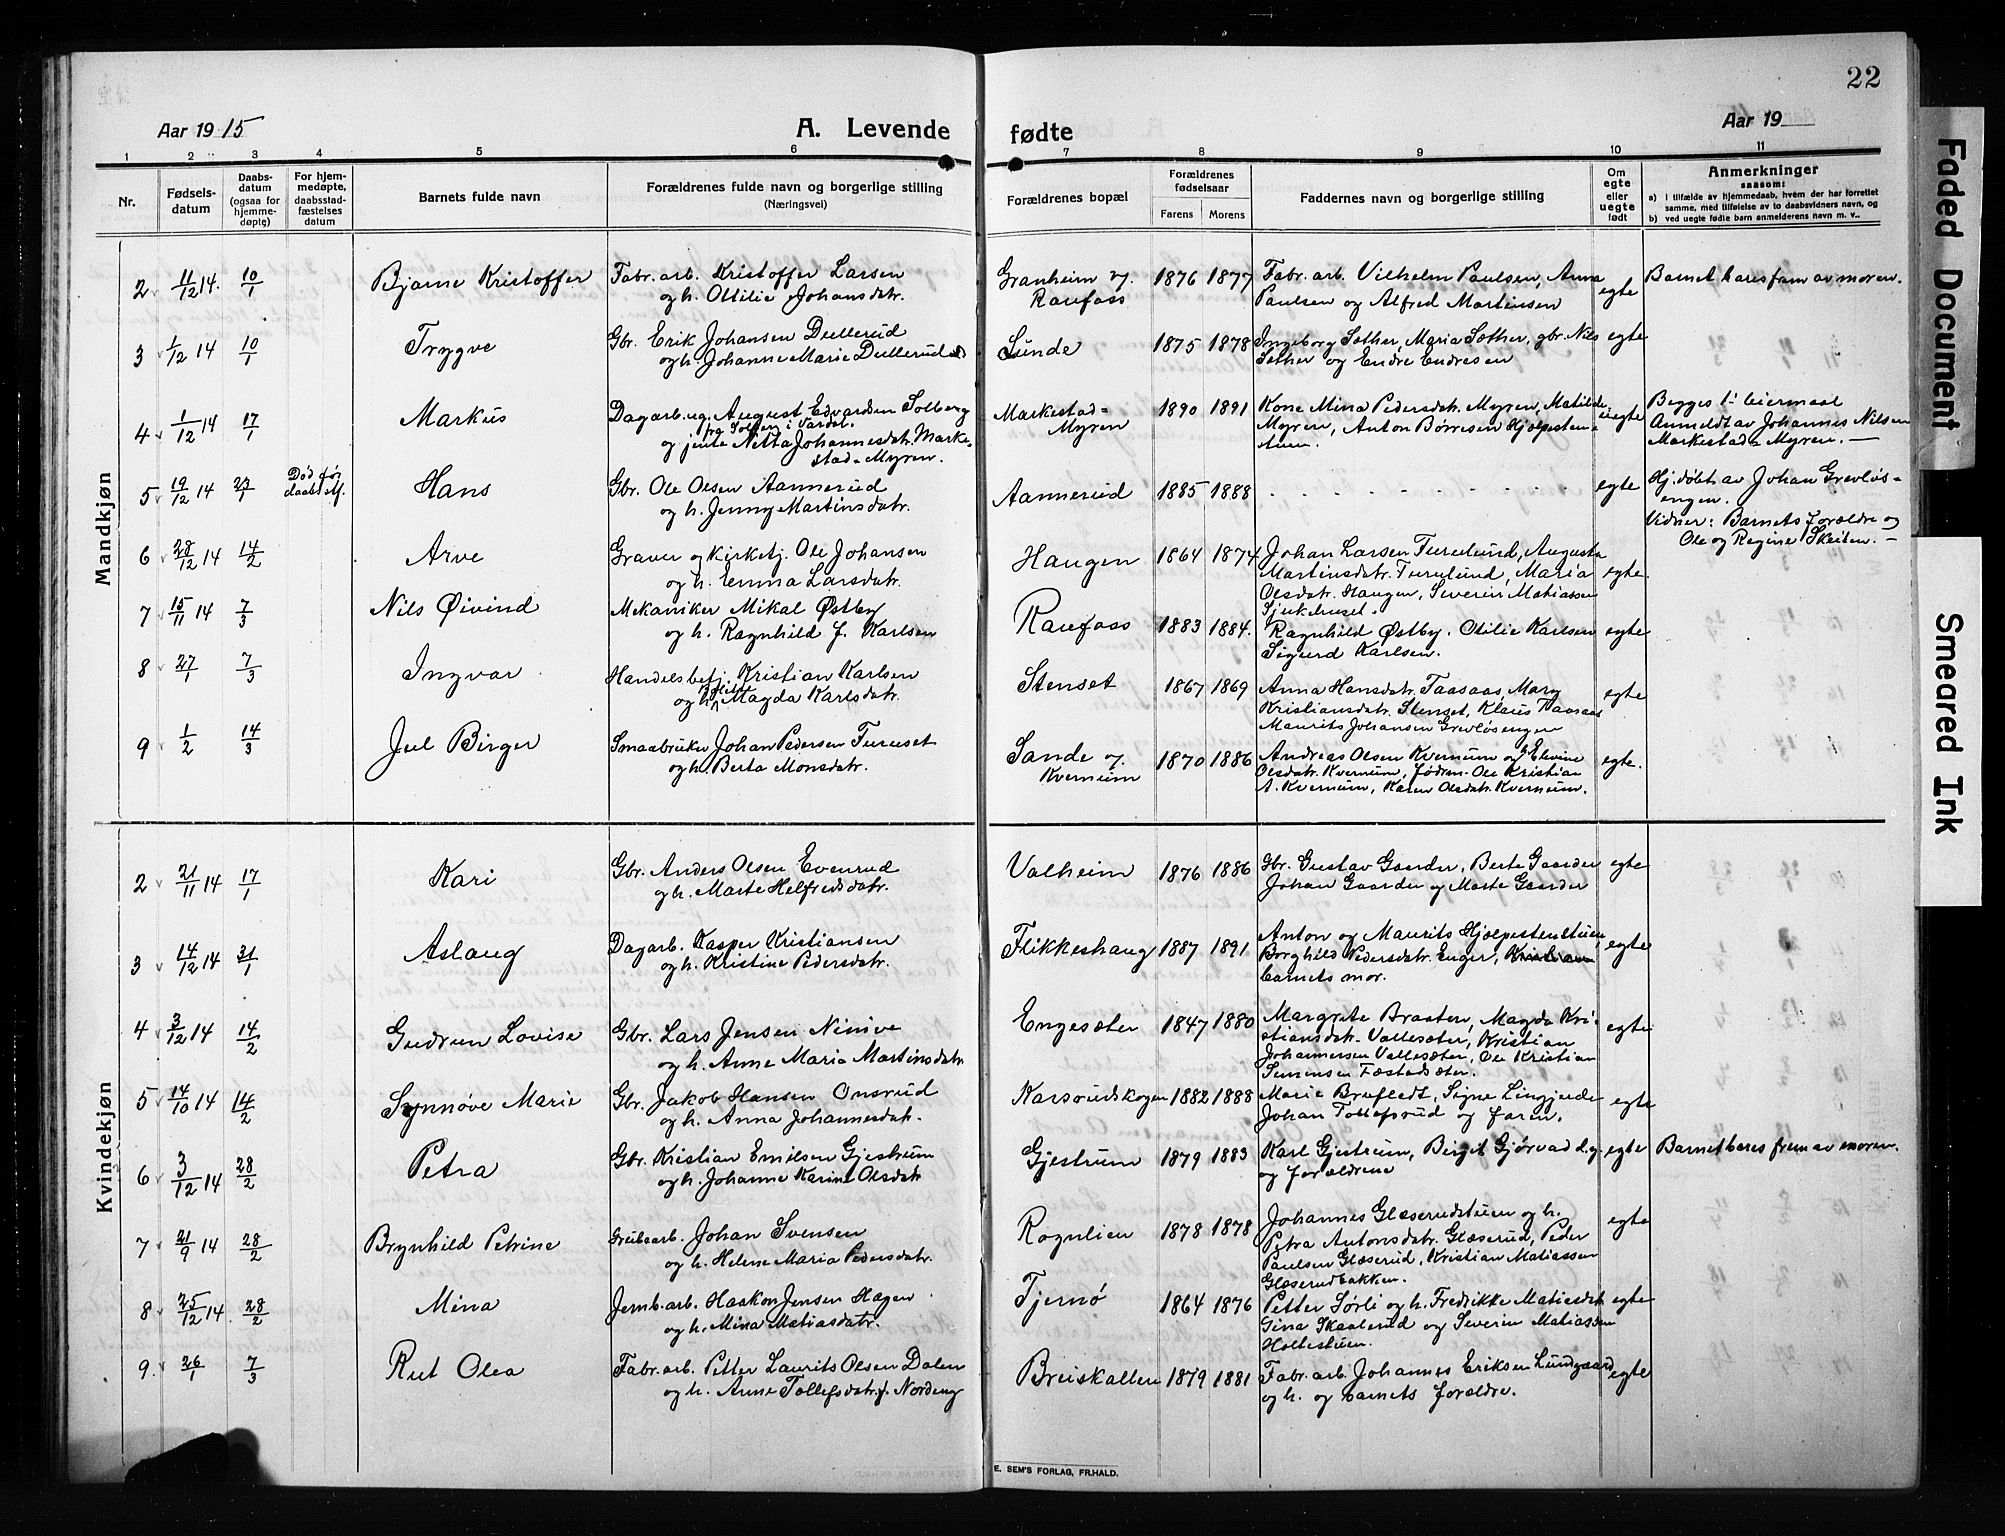 22
Aar 1915
A. Levende
fødte
Aar 19
1 2 3 4 5 6 7 8 9 10 11
Nr.
Fødsels-
datum
Daabs-
datum
(ogsaa for
hjemme-
døpte)
For hjem-
medøpte,
daabsstad-
fæstelses
datum
Barnets fulde navn
Forældrenes fulde navn og borgerlige stilling
(Næringsvei)
Forældrenes bopæl
Forældrenes
fødselsaar
Farens Morens
Faddernes navn og borgerlige stilling
Om
egte
eller
uegte
født
Anmerkninger
saasom:
a) i tilfælde av hjemmedaab, hvem der har forrettet
samme, med tilføielse av to daabsvidners navn, og
b) ved uegte fødte barn anmelderens navn m. v..
Mandkjøn
2 11/12 14. 10/1 Bjarne Kristoffer Fabr. arb. Kristoffer Larsen
og h. Ottilie Johansdatr.
Granheim v/
Raufoss
1876 1877 Fabr. arb. Vilhelm Paulsen, Anna
Paulsen og Alfred Martinsen
egte Barnet bares frem av moren.
3 1/12 14 10/1 Trygve Gbr. Erik Johansen Dullerud
og h. Johanne Marie Dullerud
Sunde 1875 1878 Ingeborg Sether, Maria Sæther, gbr. Nils
Sether og Endre Endresen
egte
4 1/12 14 17/1 Markus Dagarb. ug. August Edvardsen Solberg
fra Solberg i Vardal.
og jente Netta Johannesdatr. Marke-
stad-Myren.
Markestad-
Myren
1890 1891 Kone Mina Pedersdatr. Myren, Matilde
Myren, Anton Børresen Hjelpesten-
stuen.
uegte
Begges 1ste leiermaal
Anmeldt av Johannes Nilsen
Markestad-Myren.
5 19/12 14 Død før
daabs stf.
Hans Gbr. Ole Olsen Aannerud
og h. Jenny Martinsdatr.
Aannerud 1885 1888 egte
Hj. døbt av Johan Grevløs-
engen.
Vidner: Barnets forældre og
Ole og Regine Skeiten.
6 28/12 14 14/2 Arve Graver og kirketj. Ole Johansen
og h. Emma Larsdatr.
Haugen 1864 1874 Johan Larsen Turulund, Augusta
Martinsdatr. Turulund, Maria
Olsdatr. Haugen, Severin Matiassen
Sjukehuset.
egte.
7 15/11 14 7/3 Nils Øivind Mekaniker Mikal Østby
og h. Ragnhild f. Karlsen
Raufoss 1883 1884. Ragnhild Østby. Otilie Karlsen
Sigurd Karlsen.
egte
8 27/1 7/3 Ingvar Handelsbetj. Kristian Karlsen
og h. Magda Karlsdatr.
Stenset 1867 1869 Anna Hansdatr. Taasaas, Mary
Kristiansdatr. Stenset, Klaus Taasaas
Maurits Johansen Grevløsengen
egte
9 1/2 14/3 Jul Birger Smaabruker Johan Pedersen Turuset
og h. Berta Monsdatr.
Sande v/
Kvernum
1870 1886 Andreas Olsen Kvernum og Elevine
Olsdatr. Kvernum, Ole Kristian
A. Kvernum, Karen Olsdatr. Kvernum.
egte.
Kvindekjøn
2 21/11 14 17/1 Kari Gbr. Anders Olsen Evenrud
og h. Marte Helfredsdatr.
Valheim 1876 1886 Gbr. Gustav Gaarder, Berte Gaarder
Johan Gaarder og Marte Gaarder
egte
3 14/12 14 31/1 Aslaug Dagarb. Kasper Kristiansen
og h. Kristine Pedersdatr.
Flikkeshaug 1887 1891 Anton og Maurits Hjelpestenstuen,
Borghild Pedersdatr. Enger,
barnets mor.
egte
4 3/12 14 14/2 Gudrun Lovise Gbr. Lars Jensen Ninive
og h. Anne Maria Martinsdatr.
Engesæter 1847 1880 Margrete Braaten, Magda Kri-
stiansdatr. Vallesæter, Kristian
Johannersen Vallesæter, Ole Kristian
Simensen Fæstadsæter.
egte
5 14/10 14 14/2 Synnøve Marie Gbr. Jakob Hansen Onsrud
og h. Anna Johannesdatr.
Karsrudskogen 1882 1888 Marie Brufledt, Signe Lingjerde
Johan Tollefsrud og faren.
egte
6 3/12 14 28/2 Petra Gbr. Kristian Emilsen Gjestrum
og h. Johanne Karine Olsdatr
Gjestrum 1879 1883 Karl Gjestrum, Birgit Gjørvad s.g.
og forældrene
egte Barnet bares frem av moren.
7 21/9 14 28/2 Brynhild Petrine Grubearb. Johan Svensen
og h. Helene Maria Pedersdatr.
Rognlien 1878 1878 Johannes Glæserudstuen og h.
Petra Antonsdatr. Glæserud, Peder
Paulsen Glæserud, Kristian Matiassen
Glæserudbakken.
egte
8 25/12 14. 28/2 Mina Jernb. arb. Haakon Jensen Hagen
og h. Mina Matiasdatr.
Tjernø 1864 1876 Petter Sørli og h. Fredrikke Matiesdatr.
Gina Skaalerud og Severin Matiassen
Hollestuen.
egte
9. 26/1 7/3 Rut Olea Fabr. arb. Petter Laurits Olsen Dalen
og h. Anne Tollefsdatr. f. Nordeng
Breiskallen 1879 1881 Fabr. arb. Johannes Eriksen Lundgaard
og h. og barnets forældre.
egte
E. SEM'S FORLAG, FR.HALD.
Faded Document
Smeared Ink